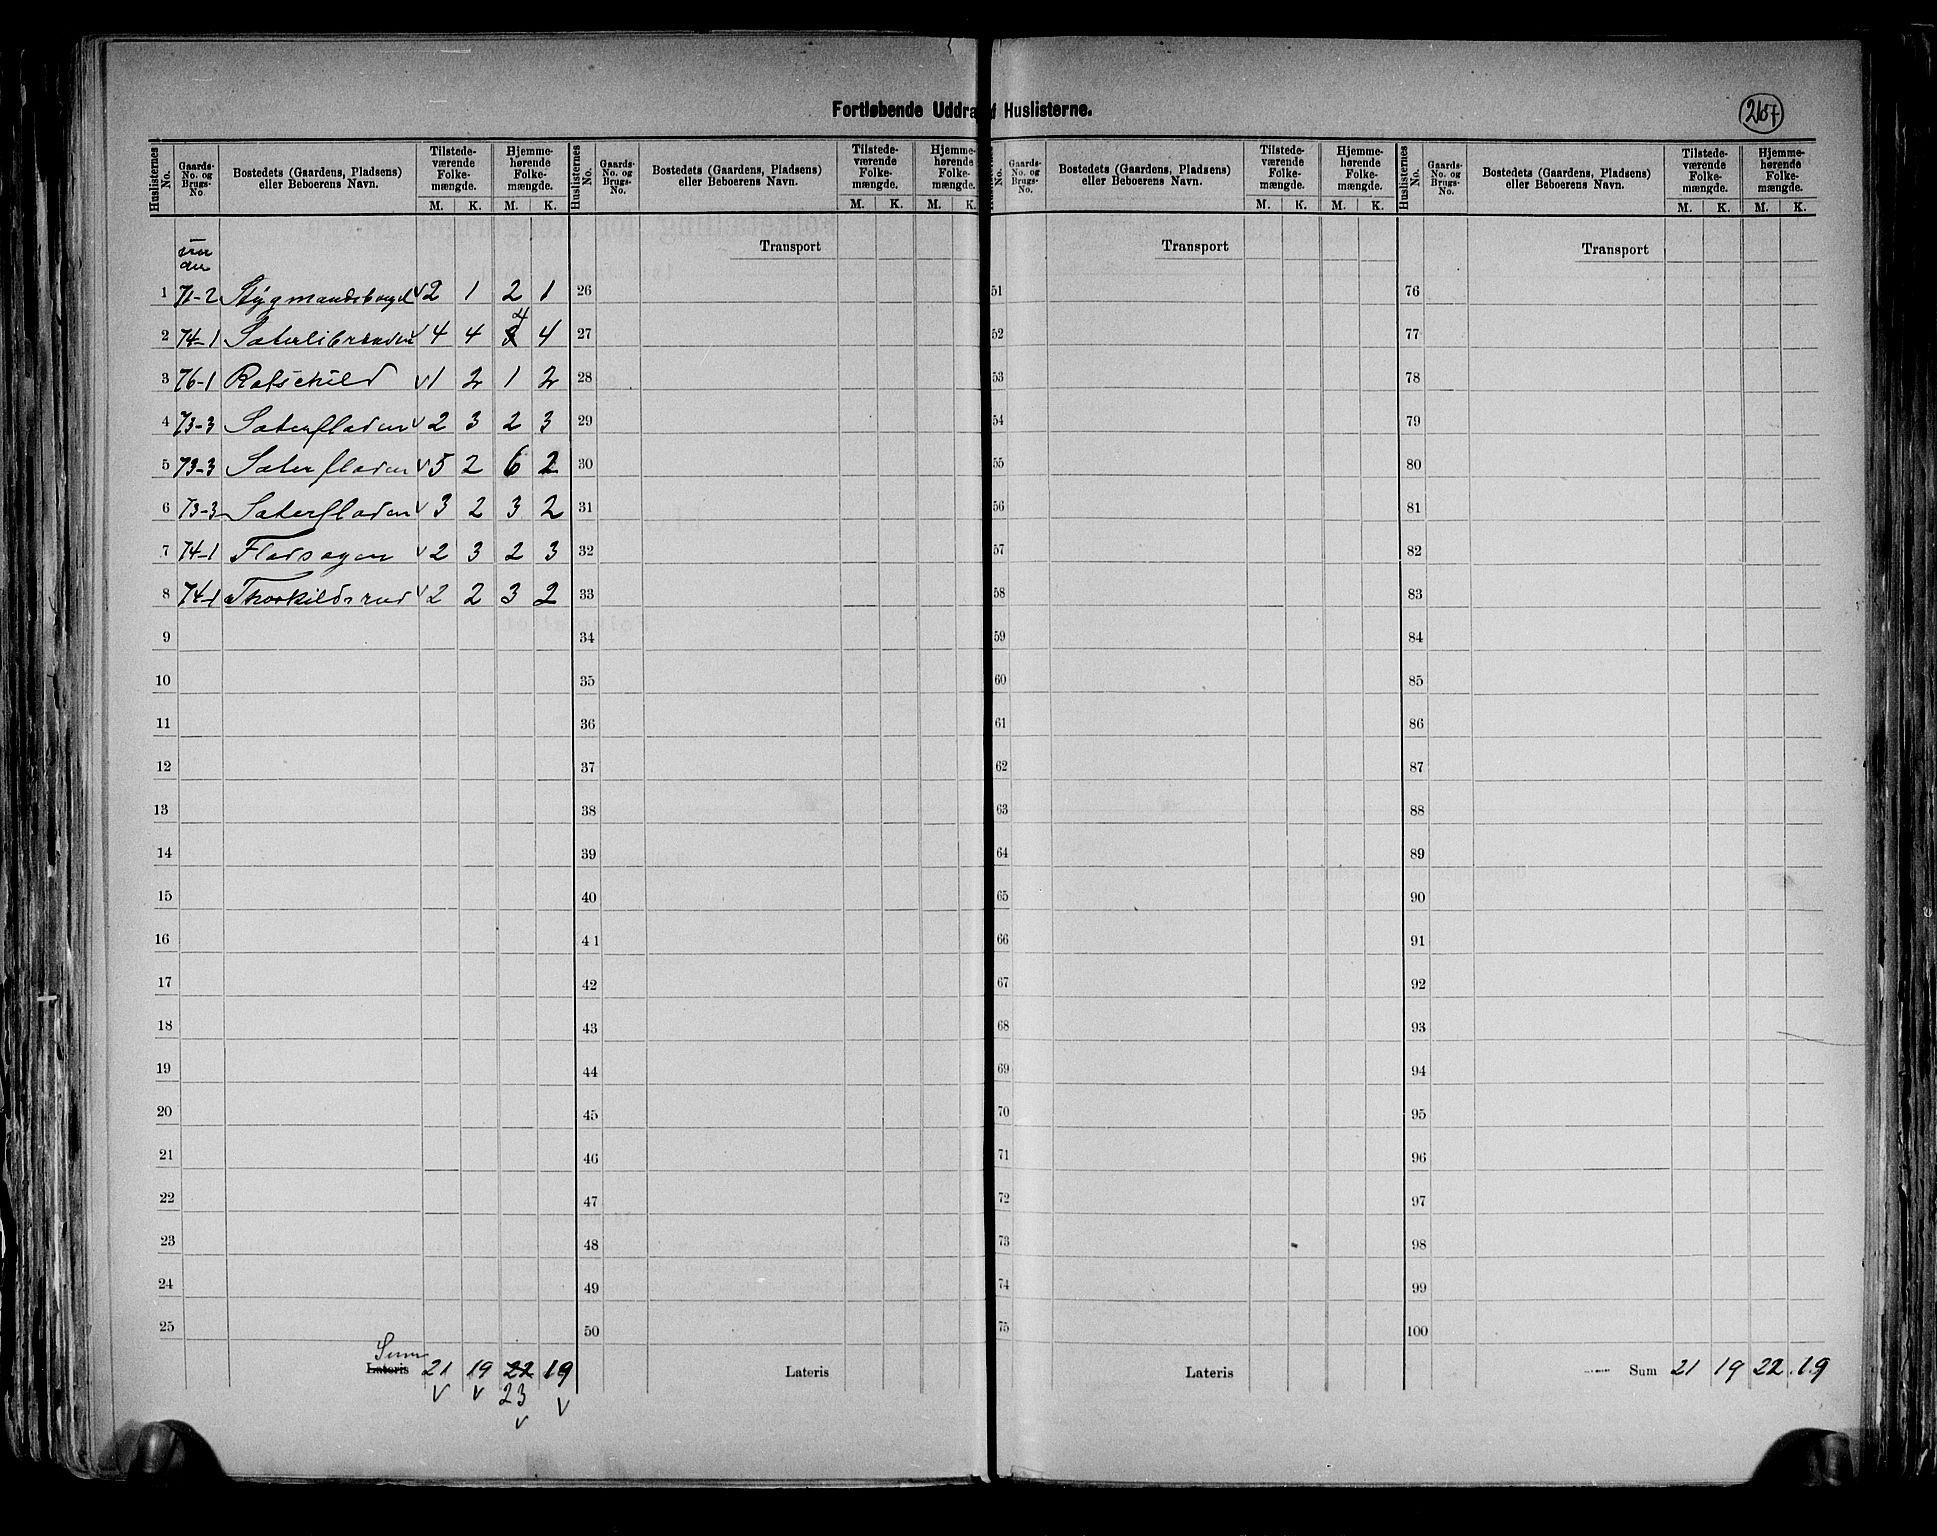 Fortløbende Uddra f Huslisterne.
267
Huslisternes No. Gaards-No. og Brugs-No. Bostedets (Gaardens, Pladsens) eller Beboerens Navn. Tilstedeværende Folkemængde. M. K. Hjemmehørende Folkemængde. M. K.
Huslisternes No. Gaards-No. og Brugs-No. Bostedets (Gaardens, Pladsens) eller Beboerens Navn. Tilstedeværende Folkemængde. M. K. Hjemmehørende Folkemængde. M. K.
No. Gaards-No. og Brugs-No. Bostedets (Gaardens, Pladsens) eller Beboerens Navn. Tilstedeværende Folkemængde. M. K. Hjemmehørende Folkemængde. M. K.
Huslisternes No. Gaards-No. og Brugs-No. Bostedets (Gaardens, Pladsens) eller Beboerens Navn. Tilstedeværende Folkemængde. M. K. Hjemmehørende Folkemængde. M. K.
Transport Transport Transport
1 71-2 v 2 1 2 1 26 51 76
2 74-1 v 4 4 4 4 27 52 77
3 76-1 Rotschild v 1 2 1 2 28 53 78
4 73-3 Sæterfladen v 2 3 2 3 29 54 79
5 73-3 Sæterfladen v 5 2 6 2 30 55 80
6 73-3 Sæterfladen v 3 2 3 2 31 56 81
7 74-1 Fladsagen v 2 3 2 3 32 57 82
8 74-1 Thorkildsrud v 2 2 3 2 33 58 83
9 34 59 84
10 35 60 85
11 36 61 86
12 37 62 87
13 38 63 88
14 39 64 89
15 40 65 90
16 41 66 91
17 42 67 92
18 43 68 93
19 44 69 94
20 45 70 95
21 46 71 96
22 47 72 97
23 48 73 98
24 49 74 99
25 50 75 100
Sum
Lateris 21 19 22 19 Lateris Lateris Sum 21 19 22 19
v v 23 v v